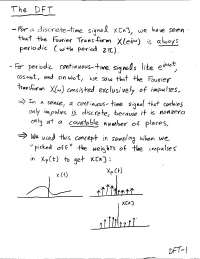 The DFT
- For a discrete-time signal x[n], we have seen
that the Fourier Transform X(e^jω) is always
periodic (with period 2π)
- For periodic continuous-time signals like e^jω₀t,
cosω₀t, and sinω₀t, we saw that the Fourier
transform X(ω) consisted exclusively of impulses.
⇒ In a sense, a continuous-time signal that contains
only impulses is discrete, because it is nonzero
only at a countable number of places.
⇒ We used this concept in sampling when we
"picked off" the weights of the impulses
in xp(t) to get x[n]:
x(t)
xp(t)
x[n]
DFT-1